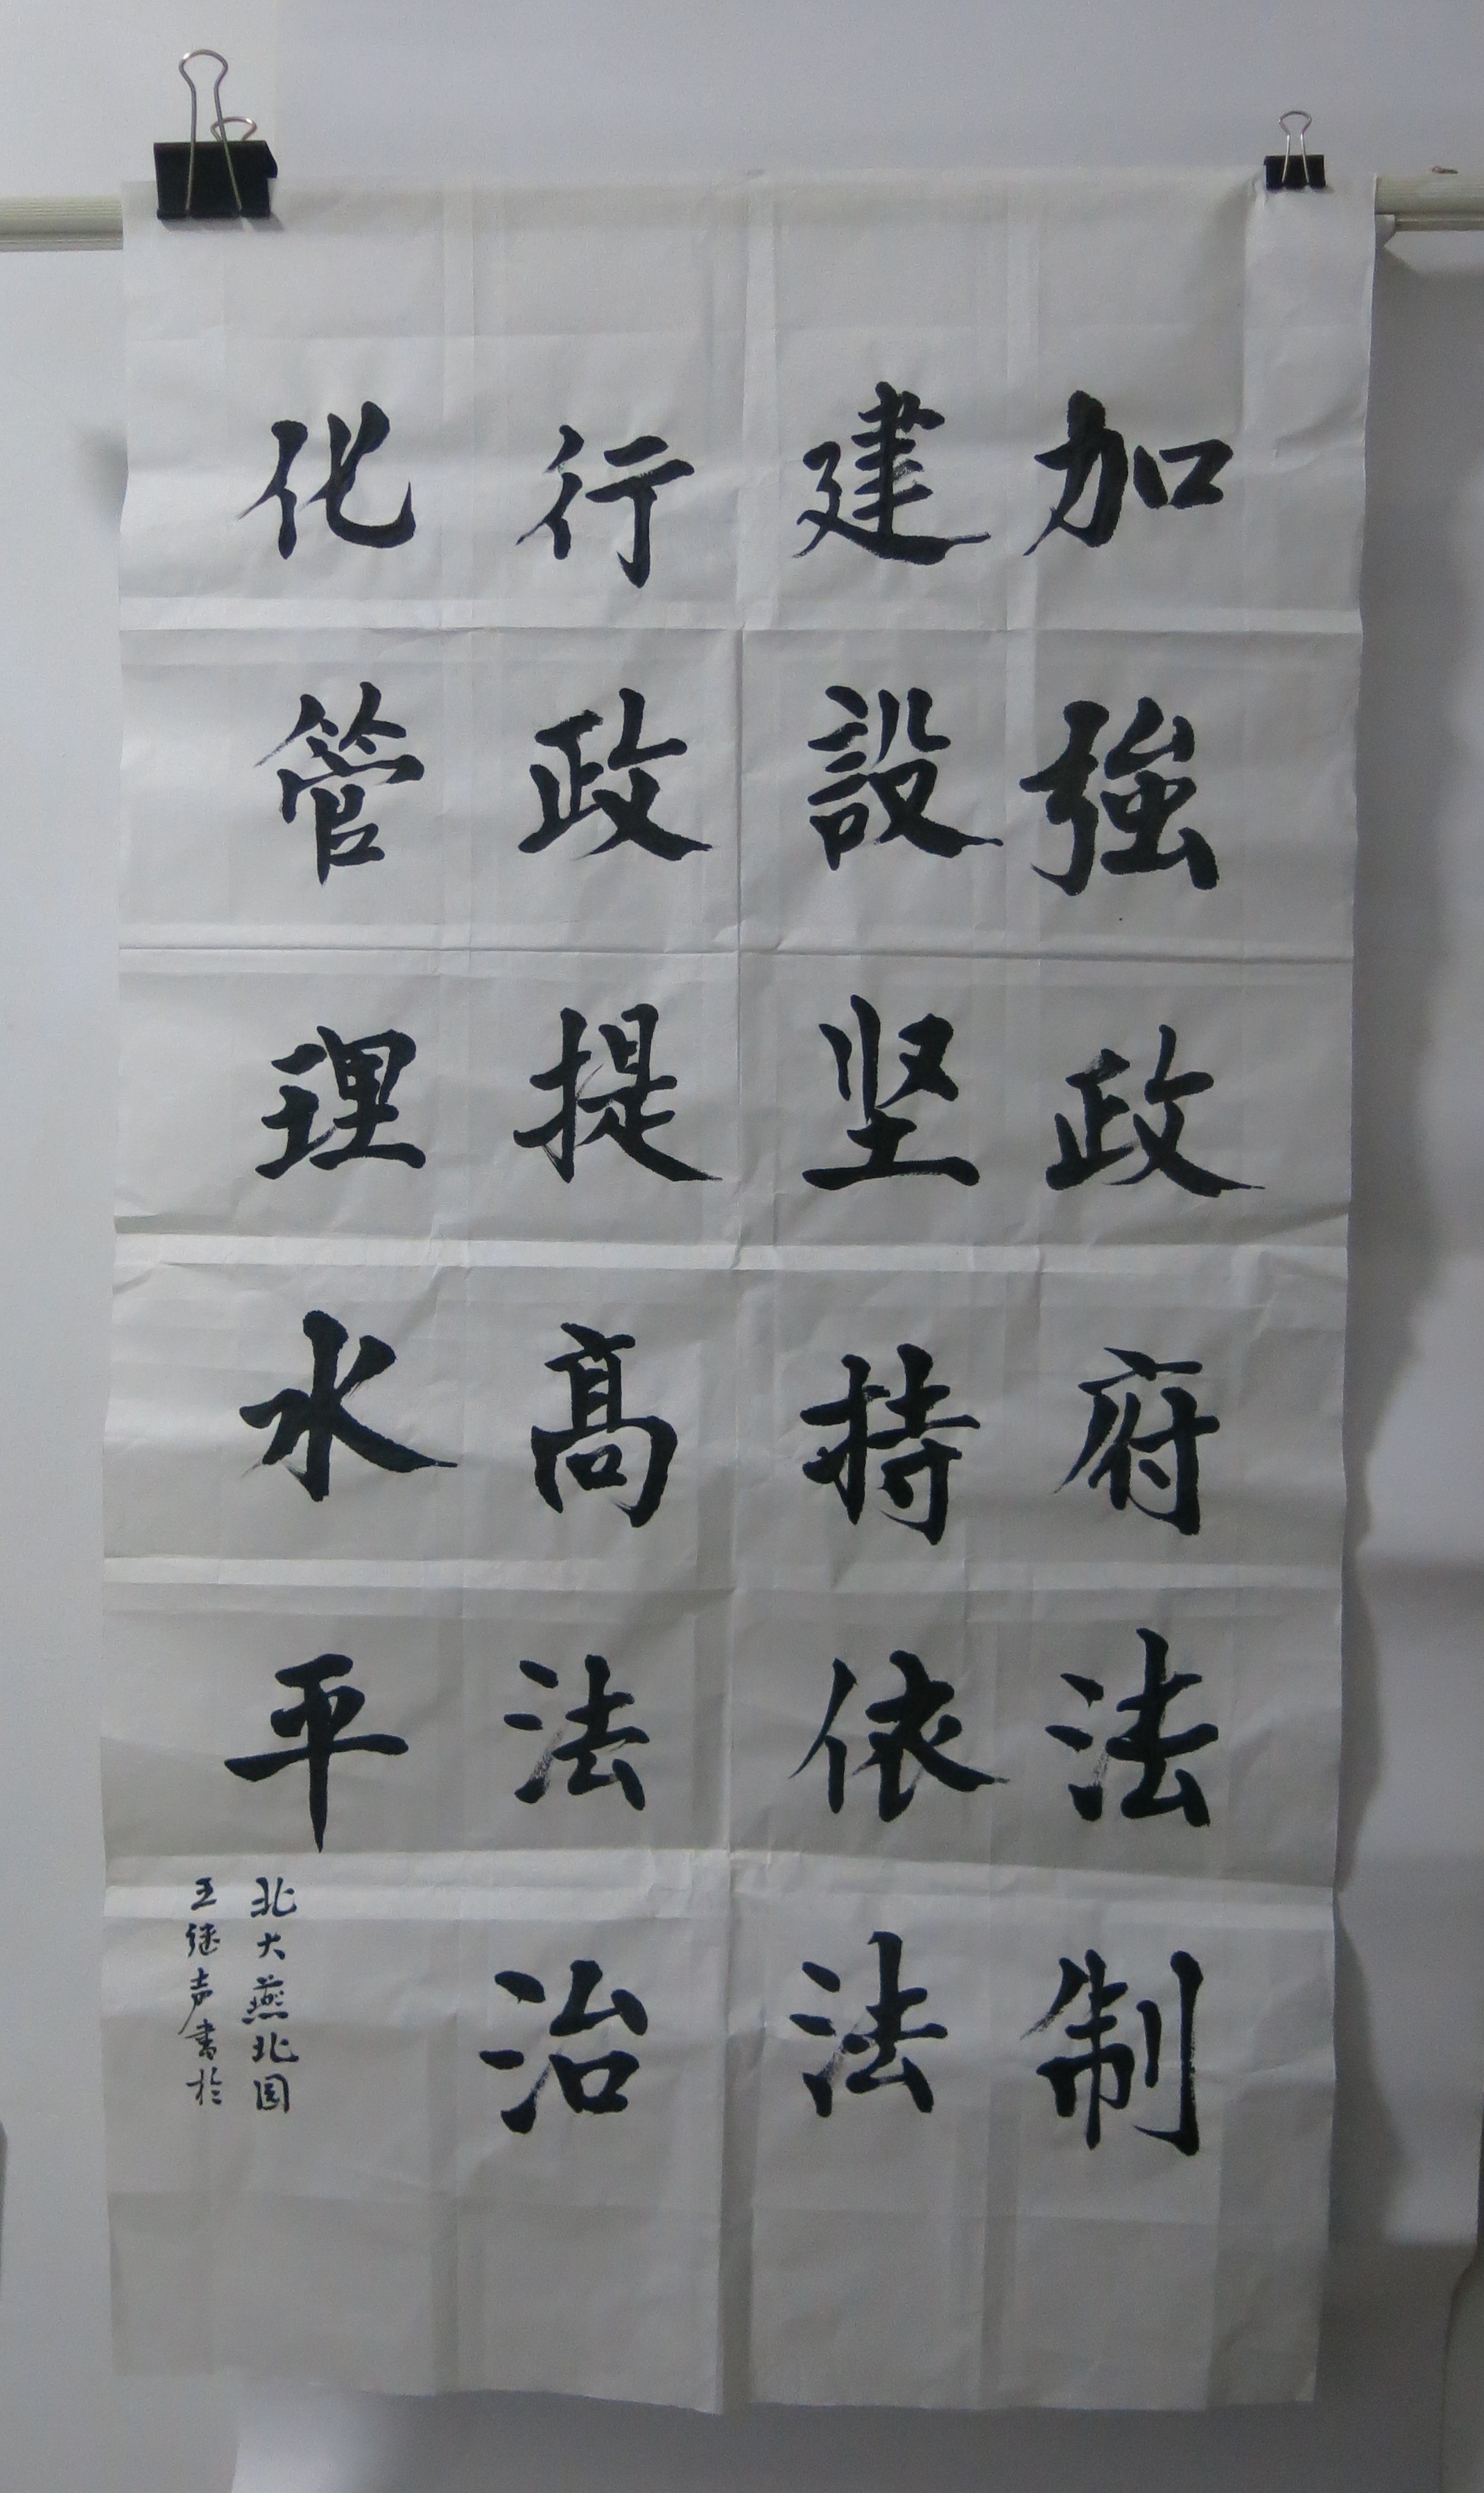 加強政府法制
建設坚持依法
行政提高法治
化管理水平
王继声書於
北大燕北园